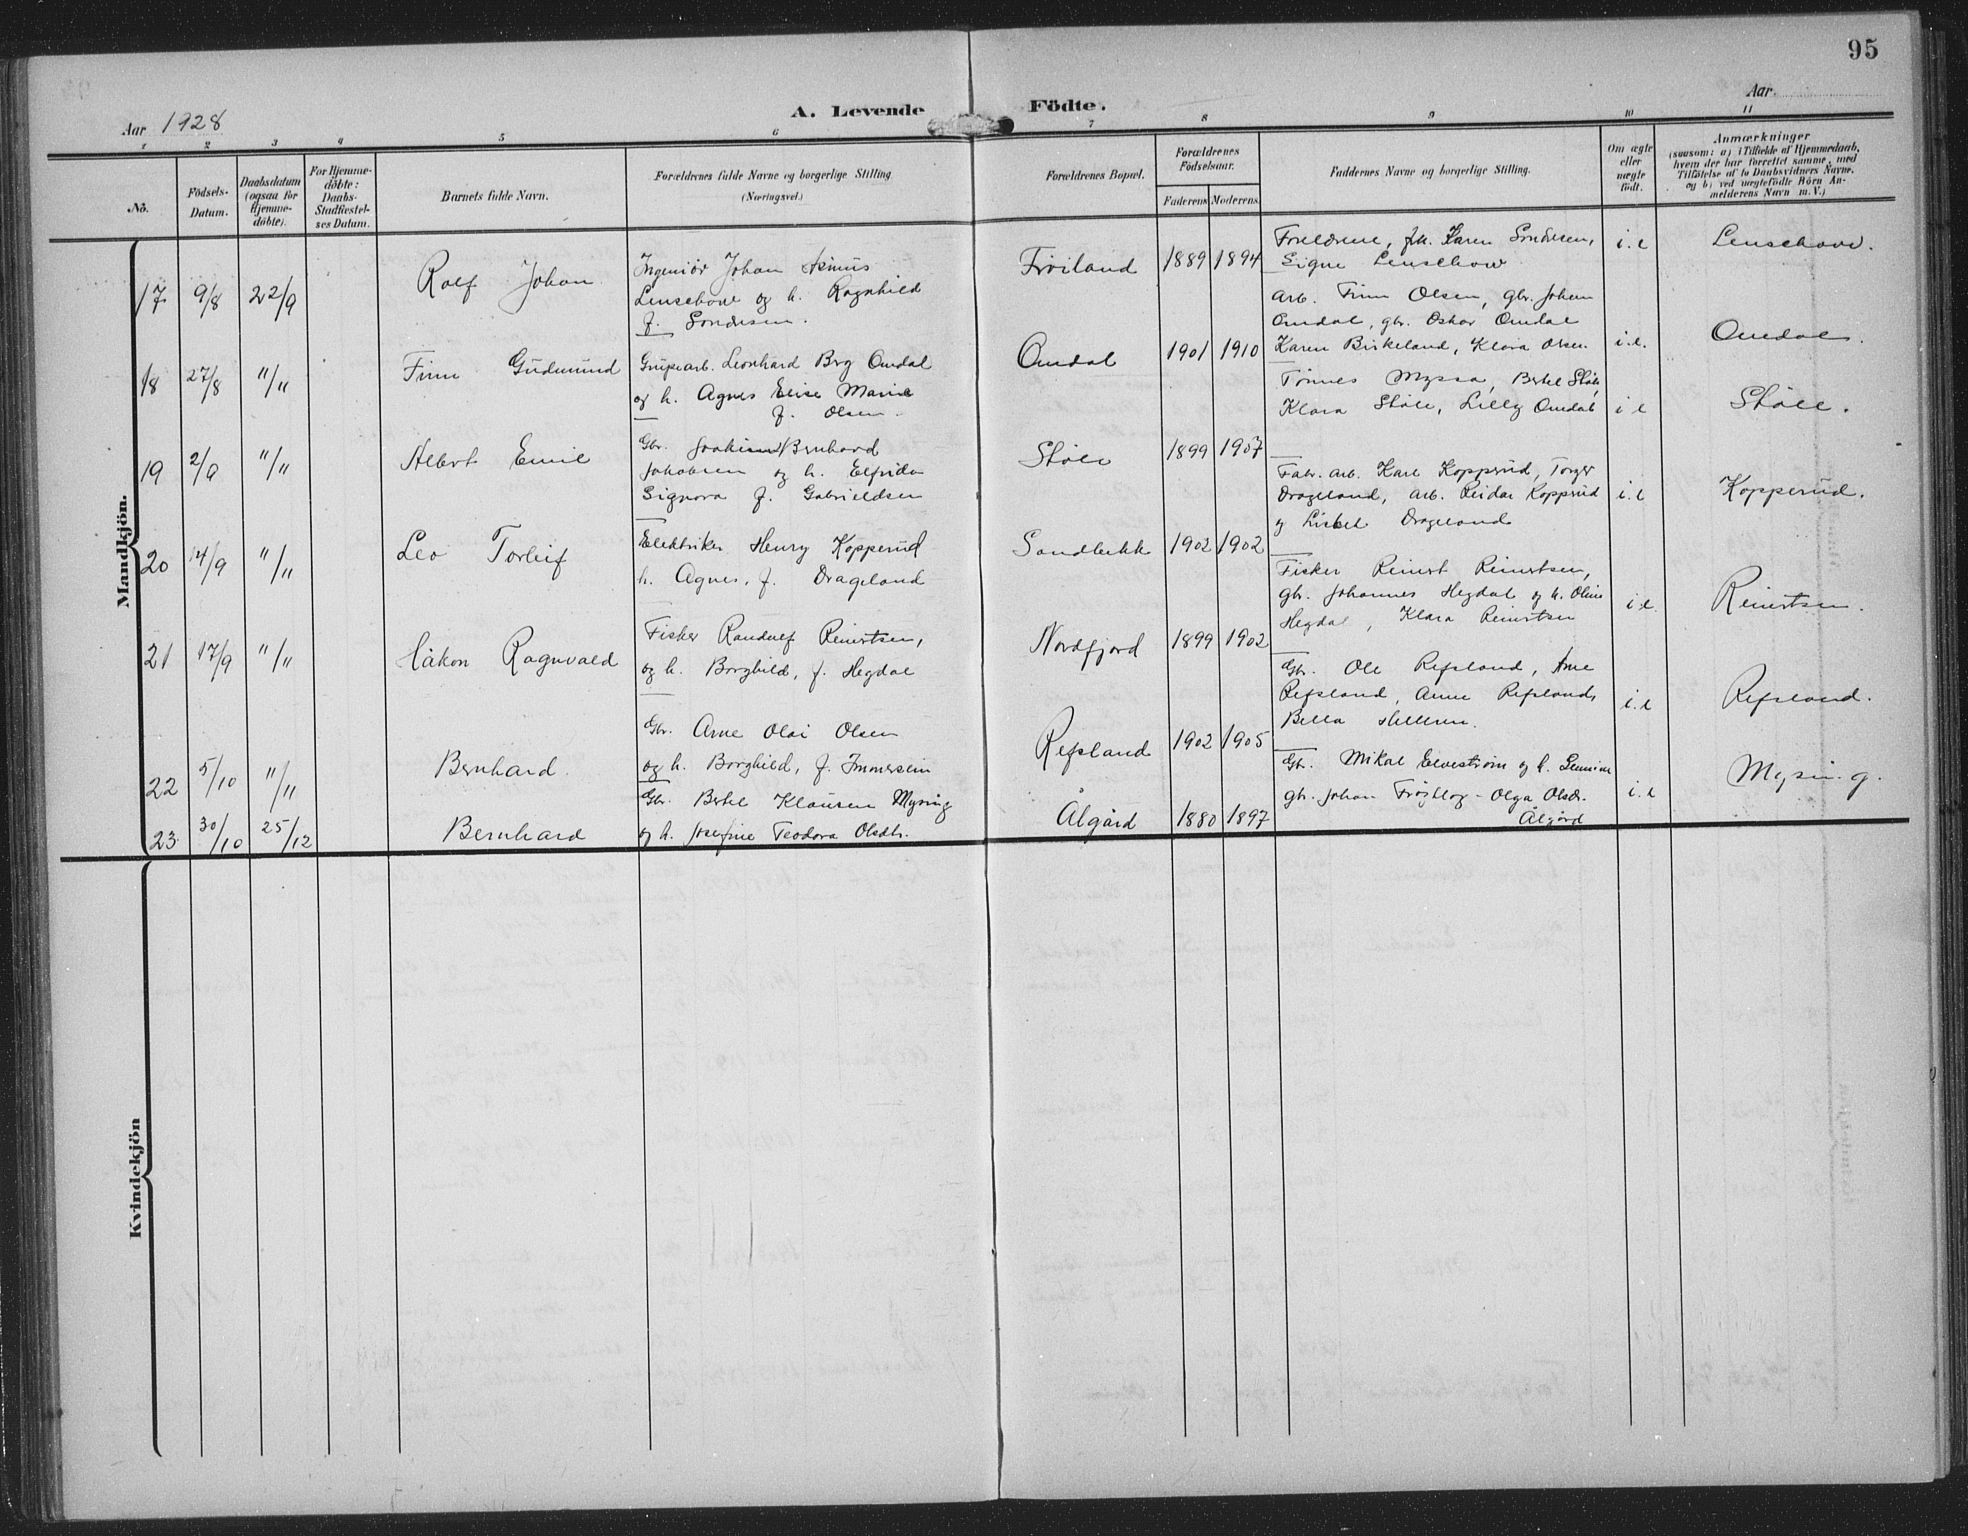 95
Aar 1928
A. Levende Födte.
Aar
1 2 3 4 5 6 7 8 9 10 11
No.
Födsels-
Datum.
Daabsdatum
(ogsaa for
Hjemme-
döbte).
For Hjemme-
döbte:
Daabs-
Stadfæstel-
ses Datum.
Barnets fulde Navn.
Forældrenes fulde Navne og borgerlige Stilling
(Næringsvei.)
Forældrenes Bopæl.
Forældrenes
Födselsaar.
Faderens Moderens.
Faddernes Navne og borgerlige Stilling.
Om ægte
eller
uægte
födt.
Anmærkninger
(saasom: a) i Tilfælde af Hjemmedaab,
hvem der har forrettet samme, med
Tilföielse af to Daabsvidners Navne,
og b) ved uægtefödte Börn An-
melderens Navn m. V.)
Mandkjön.
17 9/8 22/9
Rolf Johan
Ingeniör Johan Asmus
Lenschow og h. Ragnhild
f. Sondresen.
Fröiland
1889 1894
Foreldrene, frk. Karen Sondresen,
Signe Lenschow
i. e
Lenschow.
18 27/8 "/"
Finn Gudmund
Grupearb. Leonhard Brg Omdal
og h. Agnes Elise Marie
f. Olsen.
Omdal
1901 1910
Arb. Finn Olsen, gbr. Johan
Omdal, gbr. Oskar Omdal
Karen Birkeland, Klara Olsen
i. e.
Omdal.
19 2/9 "/"
Albert Emil
Gbr. Joakim Bernhard
Jakobsen og h. Elfrida
Signora f. Gabrieldsen
Støle
1899 1907
Tønnes Myssa, Bertel Støle,
Klara Støle, Lilly Omdal
i e
Støle.
20 14/9 "/"
Leo Torleif
Elektriker Henry Kopperud
h. Agnes, f. Drageland
Sandbekk
1902 1902
Fabr. arb. Karl Kopperud, Torger
Drageland, arb. Leidar Kopprud
og Lisbet Drageland
i. e
Kopperud.
21 17/9 "/"
Håkon Ragnvald
Fisker Randulf Reinertsen,
og h. Borghild, f. Hegdal
Nordfjord
1899 1902
Fisker Reinert Reinertsen,
gbr. Johannes Hegdal og h. Oline
Hegdal, Klara Reinertsen
i. e.
Reinertsen.
22 5/10 "/"
Bernhard.
Gbr. Arne Olai Olsen
og h. Borghild, f. Immersein
Refsland
1902 1905
Gbr. Ole Refsland, Arne
Refsland, Anne Refsland,
Bella Helleren.
i. e
Refsland.
23 30/10 25/12
Bernhard
Gbr. Bertel Klausen Mysing
og h. Josefine Teodora Olsdtr.
Ålgård
1880 1897
Gbr. Mikal Elvestrøm og h. Gemine
gbr. Johan Frøytlog - Olga Olsdr.
Ålgård
i. e
Mysing.
Kvindekjön